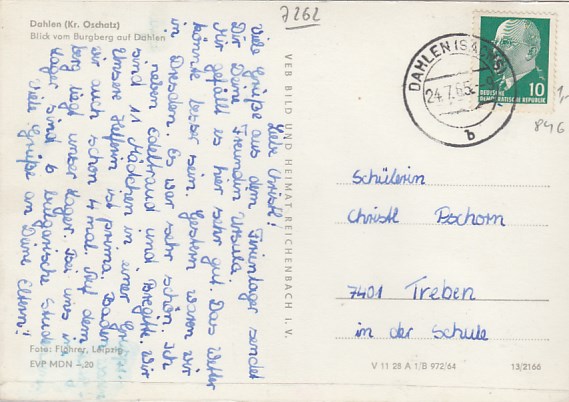 Dahlen (Kr. Oschatz)
Blick vom Burgberg auf Dahlen
7262
Liebe Christl!
Viele Grüße aus dem Ferienlager sendet
Dir Deine Freundin Ursula.
Mir gefällt es hier sehr gut. Das Wetter
könnte besser sein. Gestern waren wir
in Dresden. Es war sehr schön. Ich
neben Edeltraud und Brigitte. Wir
sind 11 Mädchen in einer
Unsere Helferin ist prima. Baden
wir auch schon 4 mal. Auf dem
berg liegt unser Lager. Bei uns im
Lager sind 6 bulgarische
Viele Grüße an Deine Eltern!
Foto: Flohrer, Leipzig
EVP MDN –,20
VEB BILD UND HEIMAT · REICHENBACH I. V.
DAHLEN (SACHS)
24.7.65
b
10
DEUTSCHE
DEMOKRATISCHE REPUBLIK
1,-
846
Schülerin
Christl Pschorn
7401 Treben
in der Schule
V 11 28 A 1/B 972/64
13/2166